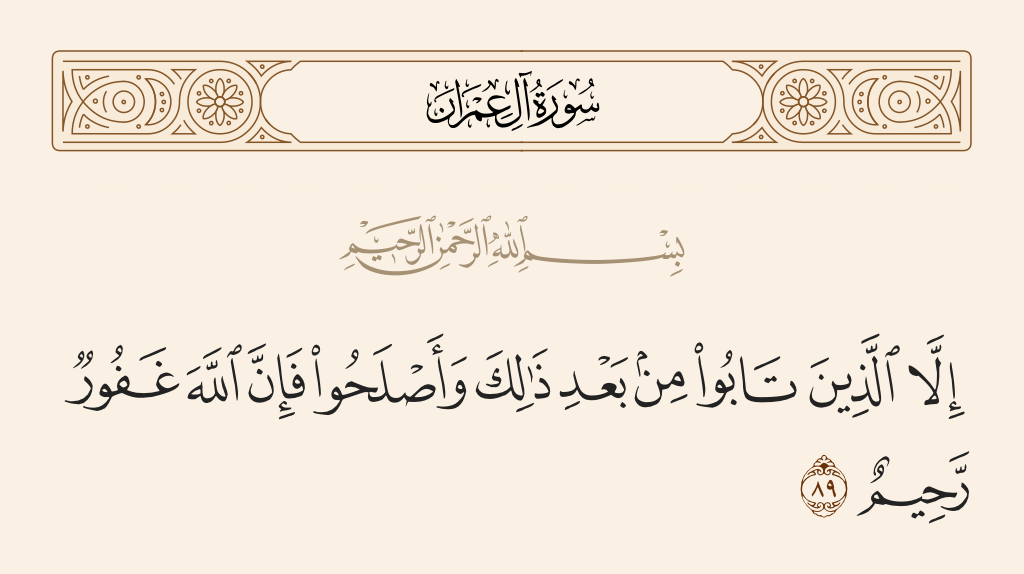 سُورَةُ آلِ عِمْرَانَ
بِسْمِ ٱللَّهِ ٱلرَّحْمَٰنِ ٱلرَّحِيمِ
إِلَّا ٱلَّذِينَ تَابُوا۟ مِنۢ بَعْدِ ذَٰلِكَ وَأَصْلَحُوا۟ فَإِنَّ ٱللَّهَ غَفُورٌ
رَّحِيمٌ ٨٩